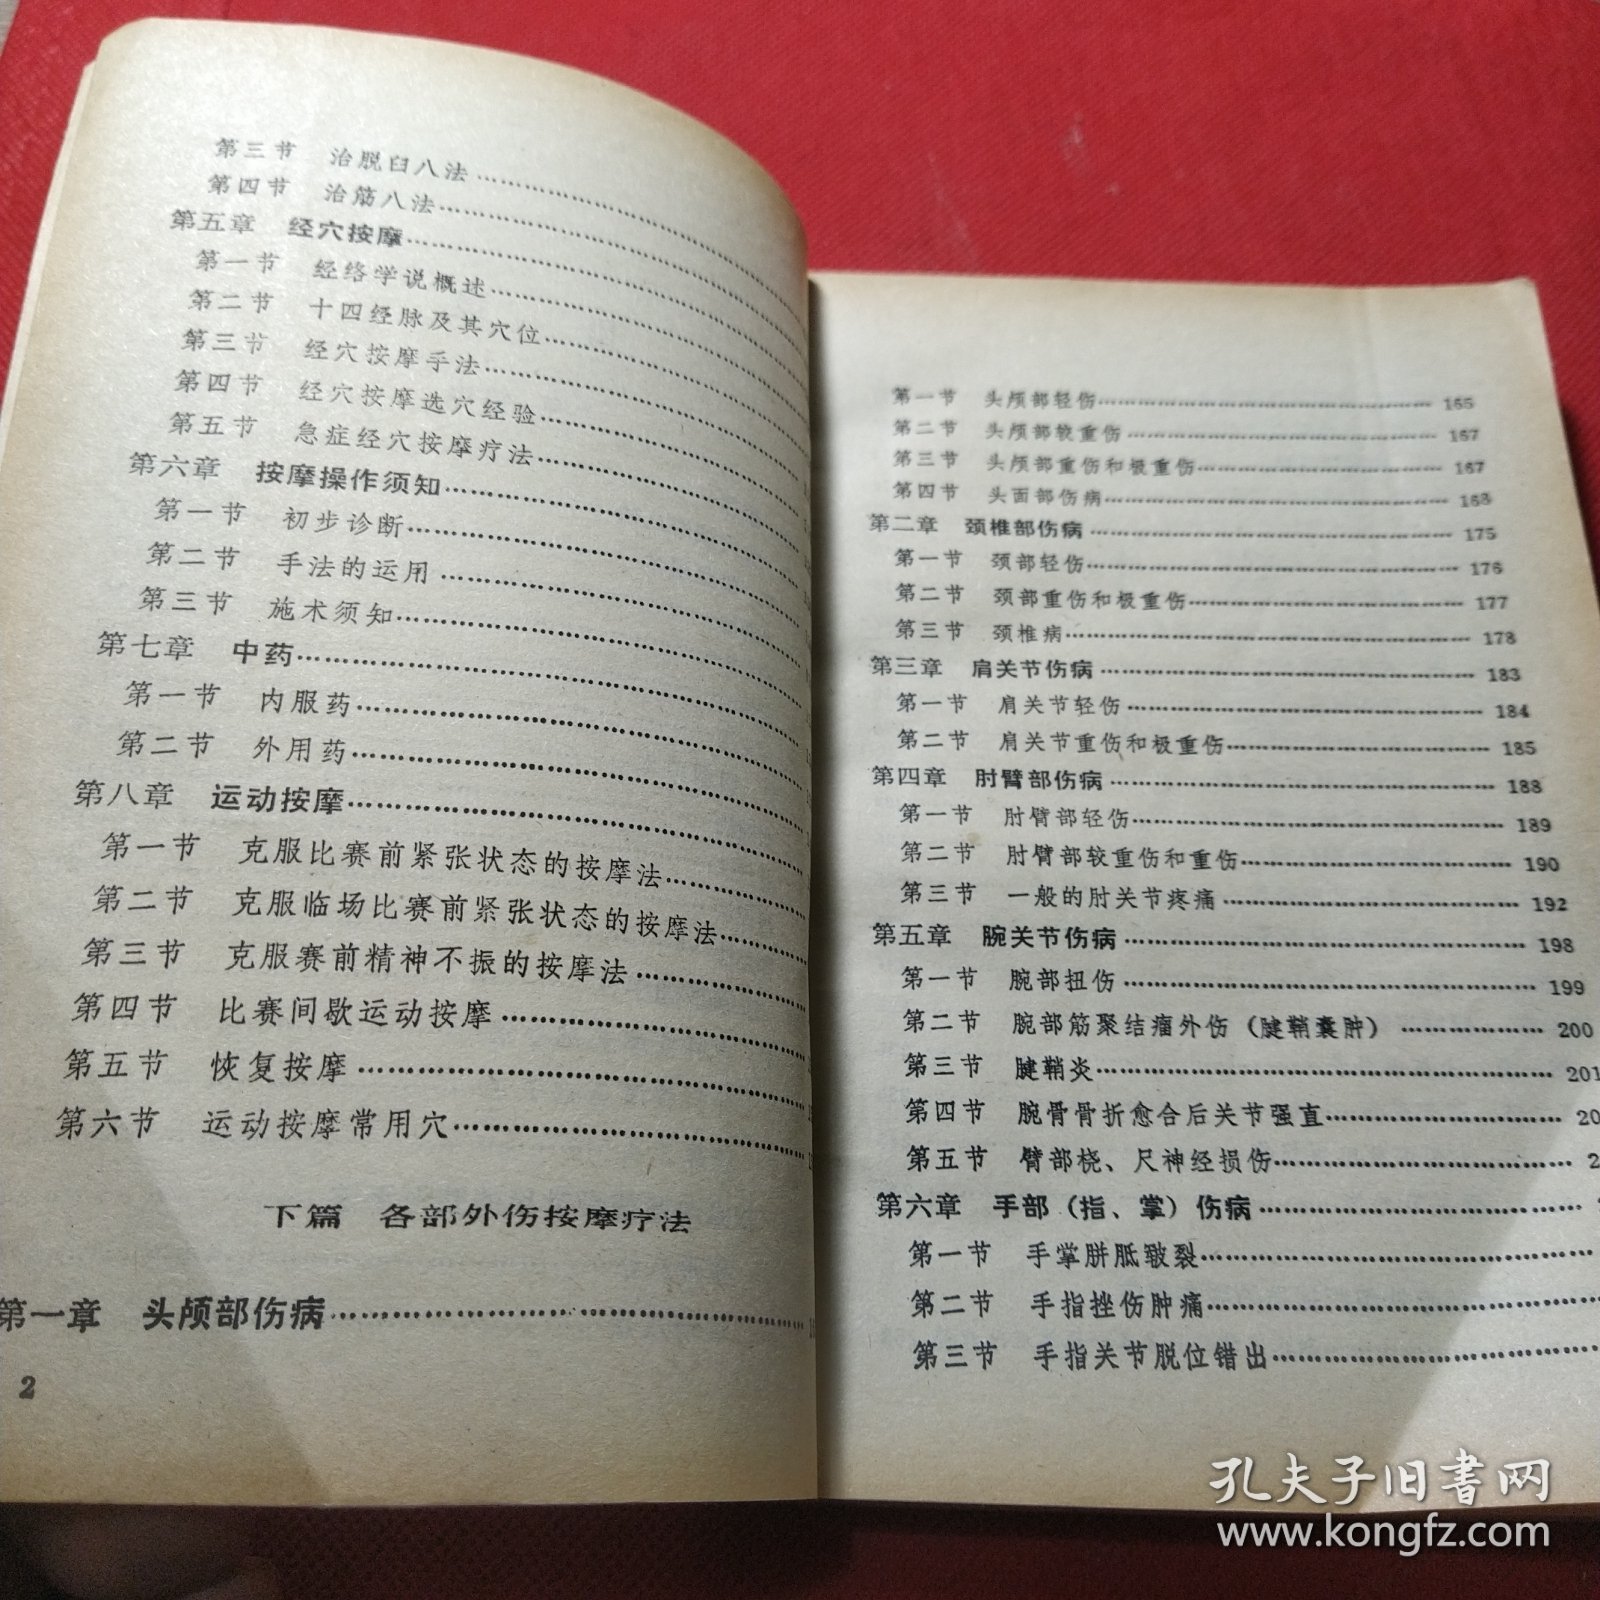 第三节 治脱臼八法
第四节 治筋八法
第五章 经穴按摩
第一节 经络学说概述
第二节 十四经脉及其穴位
第三节 经穴按摩手法
第四节 经穴按摩选穴经验
第五节 急症经穴按摩疗法
第六章 按摩操作须知
第一节 初步诊断
第二节 手法的运用
第三节 施术须知
第七章 中药
第一节 内服药
第二节 外用药
第八章 运动按摩
第一节 克服比赛前紧张状态的按摩法
第二节 克服临场比赛前紧张状态的按摩法
第三节 克服赛前精神不振的按摩法
第四节 比赛间歇运动按摩
第五节 恢复按摩
第六节 运动按摩常用穴
下篇 各部外伤按摩疗法
第一章 头颅部伤病
2
第一节 头颅部轻伤 165
第二节 头颅部较重伤 167
第三节 头颅部重伤和极重伤 167
第四节 头面部伤病 168
第二章 颈椎部伤病 175
第一节 颈部轻伤 176
第二节 颈部重伤和极重伤 177
第三节 颈椎病 178
第三章 肩关节伤病 183
第一节 肩关节轻伤 184
第二节 肩关节重伤和极重伤 185
第四章 肘臂部伤病 188
第一节 肘臂部轻伤 189
第二节 肘臂部较重伤和重伤 190
第三节 一般的肘关节疼痛 192
第五章 腕关节伤病 198
第一节 腕部扭伤 199
第二节 腕部筋聚结瘤外伤（腱鞘囊肿） 200
第三节 腱鞘炎 201
第四节 腕骨骨折愈合后关节强直 20
第五节 臂部桡、尺神经损伤 2
第六章 手部（指、掌）伤病
第一节 手掌胼胝皲裂
第二节 手指挫伤肿痛
第三节 手指关节脱位错出
孔夫子旧书网
www.kongfz.com